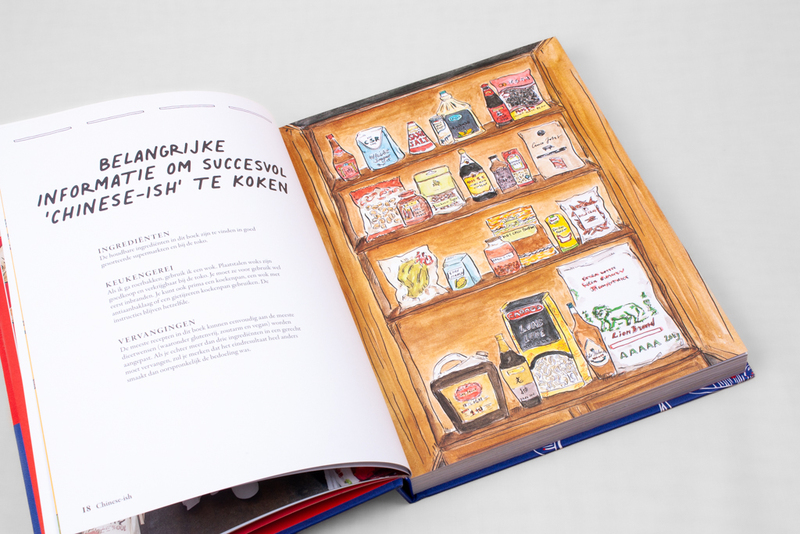 BELANGRIJKE
INFORMATIE OM SUCCESVOL
'CHINESE-ISH' TE KOKEN
INGREDIËNTEN
De houdbare ingrediënten in dit boek zijn te vinden in goed
gesorteerde supermarkten en bij de toko.
KEUKENGEREI
Als ik ga roerbakken, gebruik ik een wok. Plaatstalen woks zijn
goedkoop en verkrijgbaar bij de toko. Je moet ze voor gebruik wel
eerst inbranden. Je kunt ook prima een koekenpan, een wok met
antiaanbaklaag of een gietijzeren koekenpan gebruiken. De
instructies blijven hetzelfde.
VERVANGINGEN
De meeste recepten in dit boek kunnen eenvoudig aan de meeste
dieetwensen (waaronder glutenvrij, notenvrij en vegan) worden
aangepast. Als je echter meer dan drie ingrediënten in een gerecht
moet vervangen, zul je merken dat het eindresultaat heel anders
smaakt dan oorspronkelijk de bedoeling was.
18 Chinese-ish
SALT
Lion Brand
AAAAA